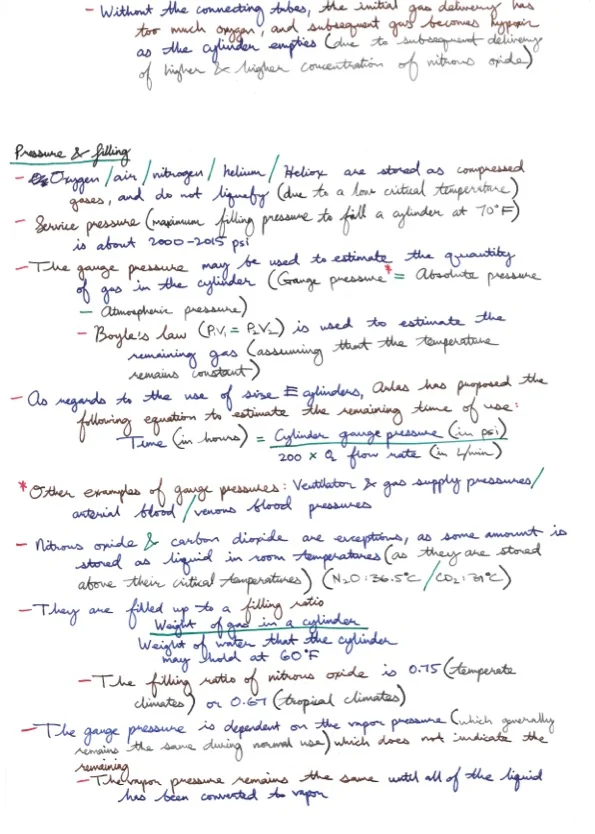 - Without the connecting tubes, the initial gas delivery has
too much oxygen, and subsequent gas becomes hypoxic
as the cylinder empties (due to subsequent delivery
of higher & higher concentration of nitrous oxide)
Pressure & filling
- Oxygen/air/nitrogen/helium/Heliox are stored as compressed
gases, and do not liquefy (due to a low critical temperature)
- Service pressure (maximum filling pressure to fill a cylinder at 70°F)
is about 2000-2015 psi
- The gauge pressure may be used to estimate the quantity
of gas in the cylinder (Gauge pressure* = Absolute pressure
- Atmospheric pressure)
- Boyle's law (P₁V₁ = P₂V₂) is used to estimate the
remaining gas (assuming that the temperature
remains constant)
- As regards to the use of size E cylinders, Atlas has proposed the
following equation to estimate the remaining time of use:
Time (in hours) = Cylinder gauge pressure (in psi)
200 x O₂ flow rate (in L/min)
* Other examples of gauge pressures: Ventilator & gas supply pressures/
arterial blood/venous blood pressures
- Nitrous oxide & carbon dioxide are exceptions, as some amount is
stored as liquid in room temperatures (as they are stored
above their critical temperatures) (N₂O: 36.5°C/CO₂: 31°C)
- They are filled up to a filling ratio
Weight of gas in a cylinder
Weight of water that the cylinder
may hold at 60°F
- The filling ratio of nitrous oxide is 0.75 (temperate
climates) or 0.67 (tropical climates)
- The gauge pressure is dependent on the vapor pressure (which generally
remains the same during normal use) which does not indicate the
remaining
- The vapor pressure remains the same until all of the liquid
has been converted to vapor